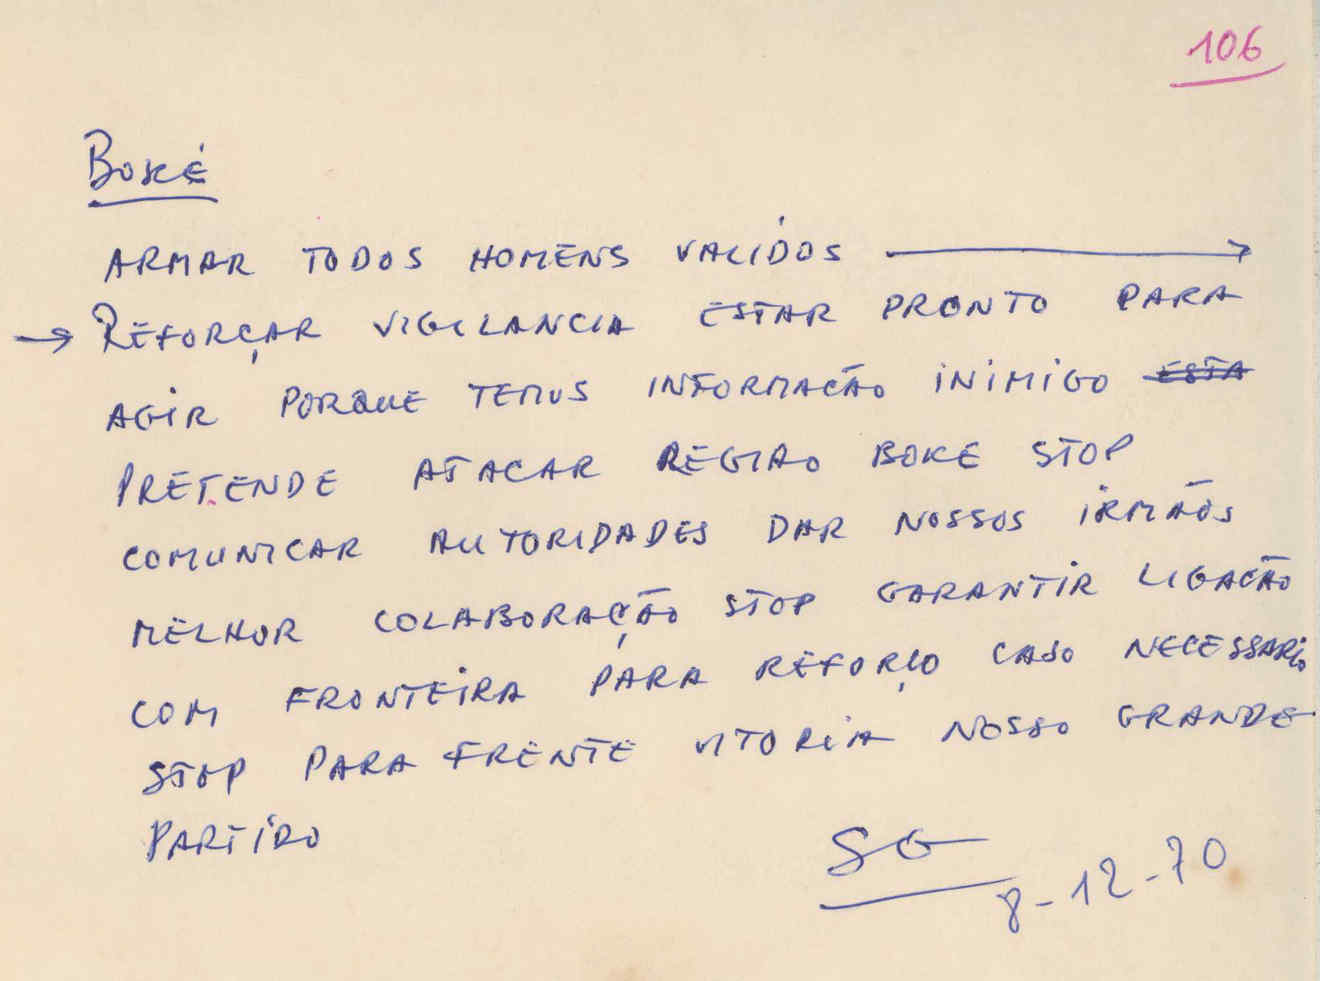 106
BOKÉ
ARMAR TODOS HOMENS VALIDOS →
→ REFORÇAR VIGILANCIA ESTAR PRONTO PARA
AGIR PORQUE TEMOS INFORMAÇÃO INIMIGO ESTA
PRETENDE ATACAR REGIAO BOKE STOP
COMUNICAR AUTORIDADES DAR NOSSOS IRMÃOS
MELHOR COLABORAÇÃO STOP GARANTIR LIGACÃO
COM FRONTEIRA PARA REFORÇO CASO NECESSARIO
STOP PARA FRENTE VITORIA NOSSO GRANDE
PARTIDO
SG
8-12-70